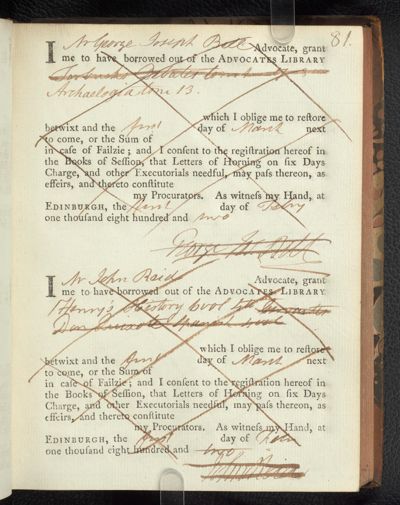 81.
I Mr George Joseph Bell Advocate, grant
me to have borrowed out of the ADVOCATES LIBRARY
Archaeologia tome 13.
which I oblige me to reſtore
betwixt and the first day of March next
to come, or the Sum of
in caſe of Failzie; and I conſent to the regiſtration hereof in
the Books of Seſſion, that Letters of Horning on ſix Days
Charge, and other Executorials needful, may paſs thereon, as
effeirs, and thereto conſtitute
my Procurators. As witneſs my Hand, at
EDINBURGH, the first day of Febry
one thouſand eight hundred and two
George Jos. Bell
I Mr John Reid Advocate, grant
me to have borrowed out of the ADVOCATES LIBRARY
Henry's History
which I oblige me to reſtore
betwixt and the first day of March next
to come, or the Sum of
in caſe of Failzie; and I conſent to the regiſtration hereof in
the Books of Seſſion, that Letters of Horning on ſix Days
Charge, and other Executorials needful, may paſs thereon, as
effeirs, and thereto conſtitute
my Procurators. As witneſs my Hand, at
EDINBURGH, the first day of
one thouſand eight hundred and two